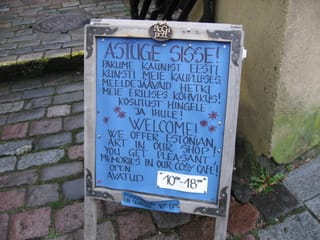 ASTUGE SISSE!
PAKUME KAUNIST EESTI
KUNSTI MEIE KAUPLUSES,
MEELDEJÄÄVAID HETKI
MEIE ERILISES KOHVIKUS!
KOSUTUST HINGELE
JA IHULE!
WELCOME!
WE OFFER ESTONIAN
ART IN OUR SHOP!
YOU GET PLEASANT
MEMORIES IN OUR COSY CAFE!
OPEN
AVATUD
1000-1800